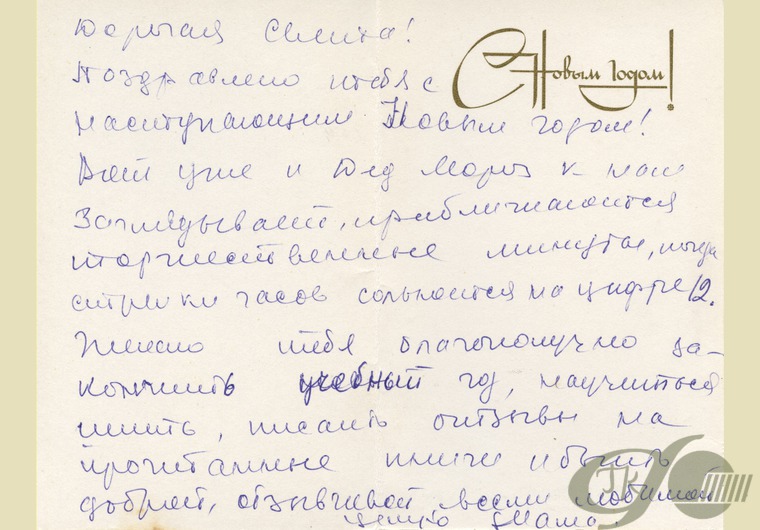 Дорогая Света!
Поздравляю тебя с
С Новым годом!
наступающим Новым годом!
Вот уже и Дед Мороз к нам
заглядывает, приближаются
торжественные минуты, когда
стрелки часов сольются на цифре 12.
Желаю тебя благополучно за-
кончить учебный год, научиться
шить, писать отзывы на
прочитанные книги и быть
доброй, отзывчивой всеми любимой
целую Мама